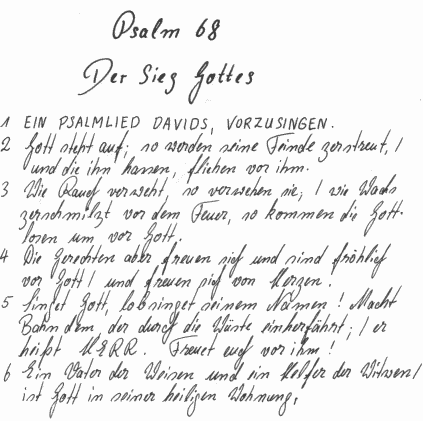 Psalm 68
Der Sieg Gottes
1 EIN PSALMLIED DAVIDS, VORZUSINGEN.
2 Gott steht auf; so werden seine Feinde zerstreut, /
und die ihn hassen, fliehen vor ihm.
3 Wie Rauch verweht, so verwehen sie; / wie Wachs
zerschmilzt vor dem Feuer, so kommen die Gott-
losen um vor Gott.
4 Die Gerechten aber freuen sich und sind fröhlich
vor Gott / und freuen sich von Herzen.
5 Singet Gott, lobsinget seinem Namen! Macht
Bahn dem, der durch die Wüste einherfährt; / er
heißt HERR. Freuet euch vor ihm!
6 Ein Vater der Waisen und ein Helfer der Witwen /
ist Gott in seiner heiligen Wohnung,